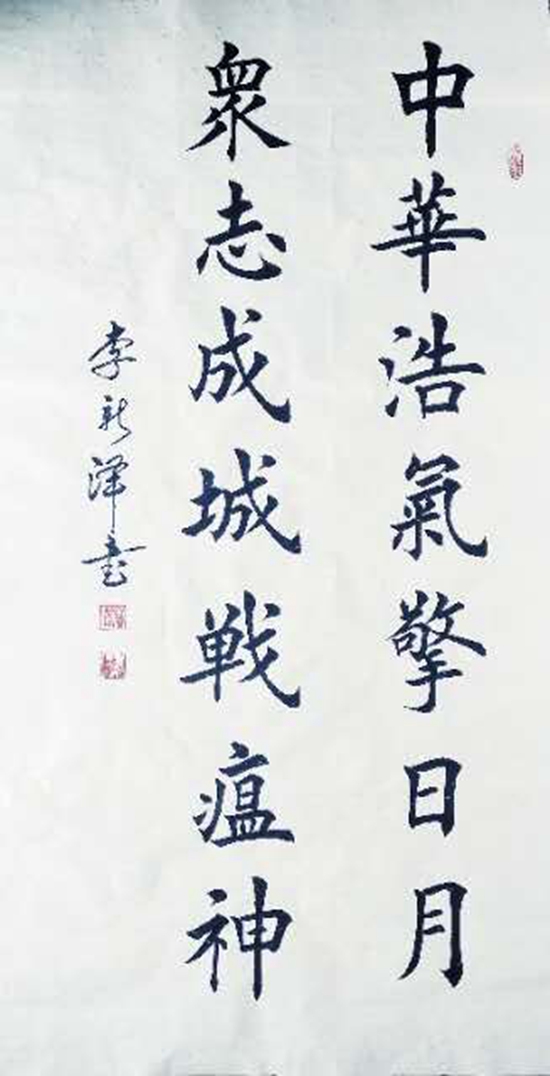 中華浩氣擎日月
衆志成城戦瘟神
李新澤書